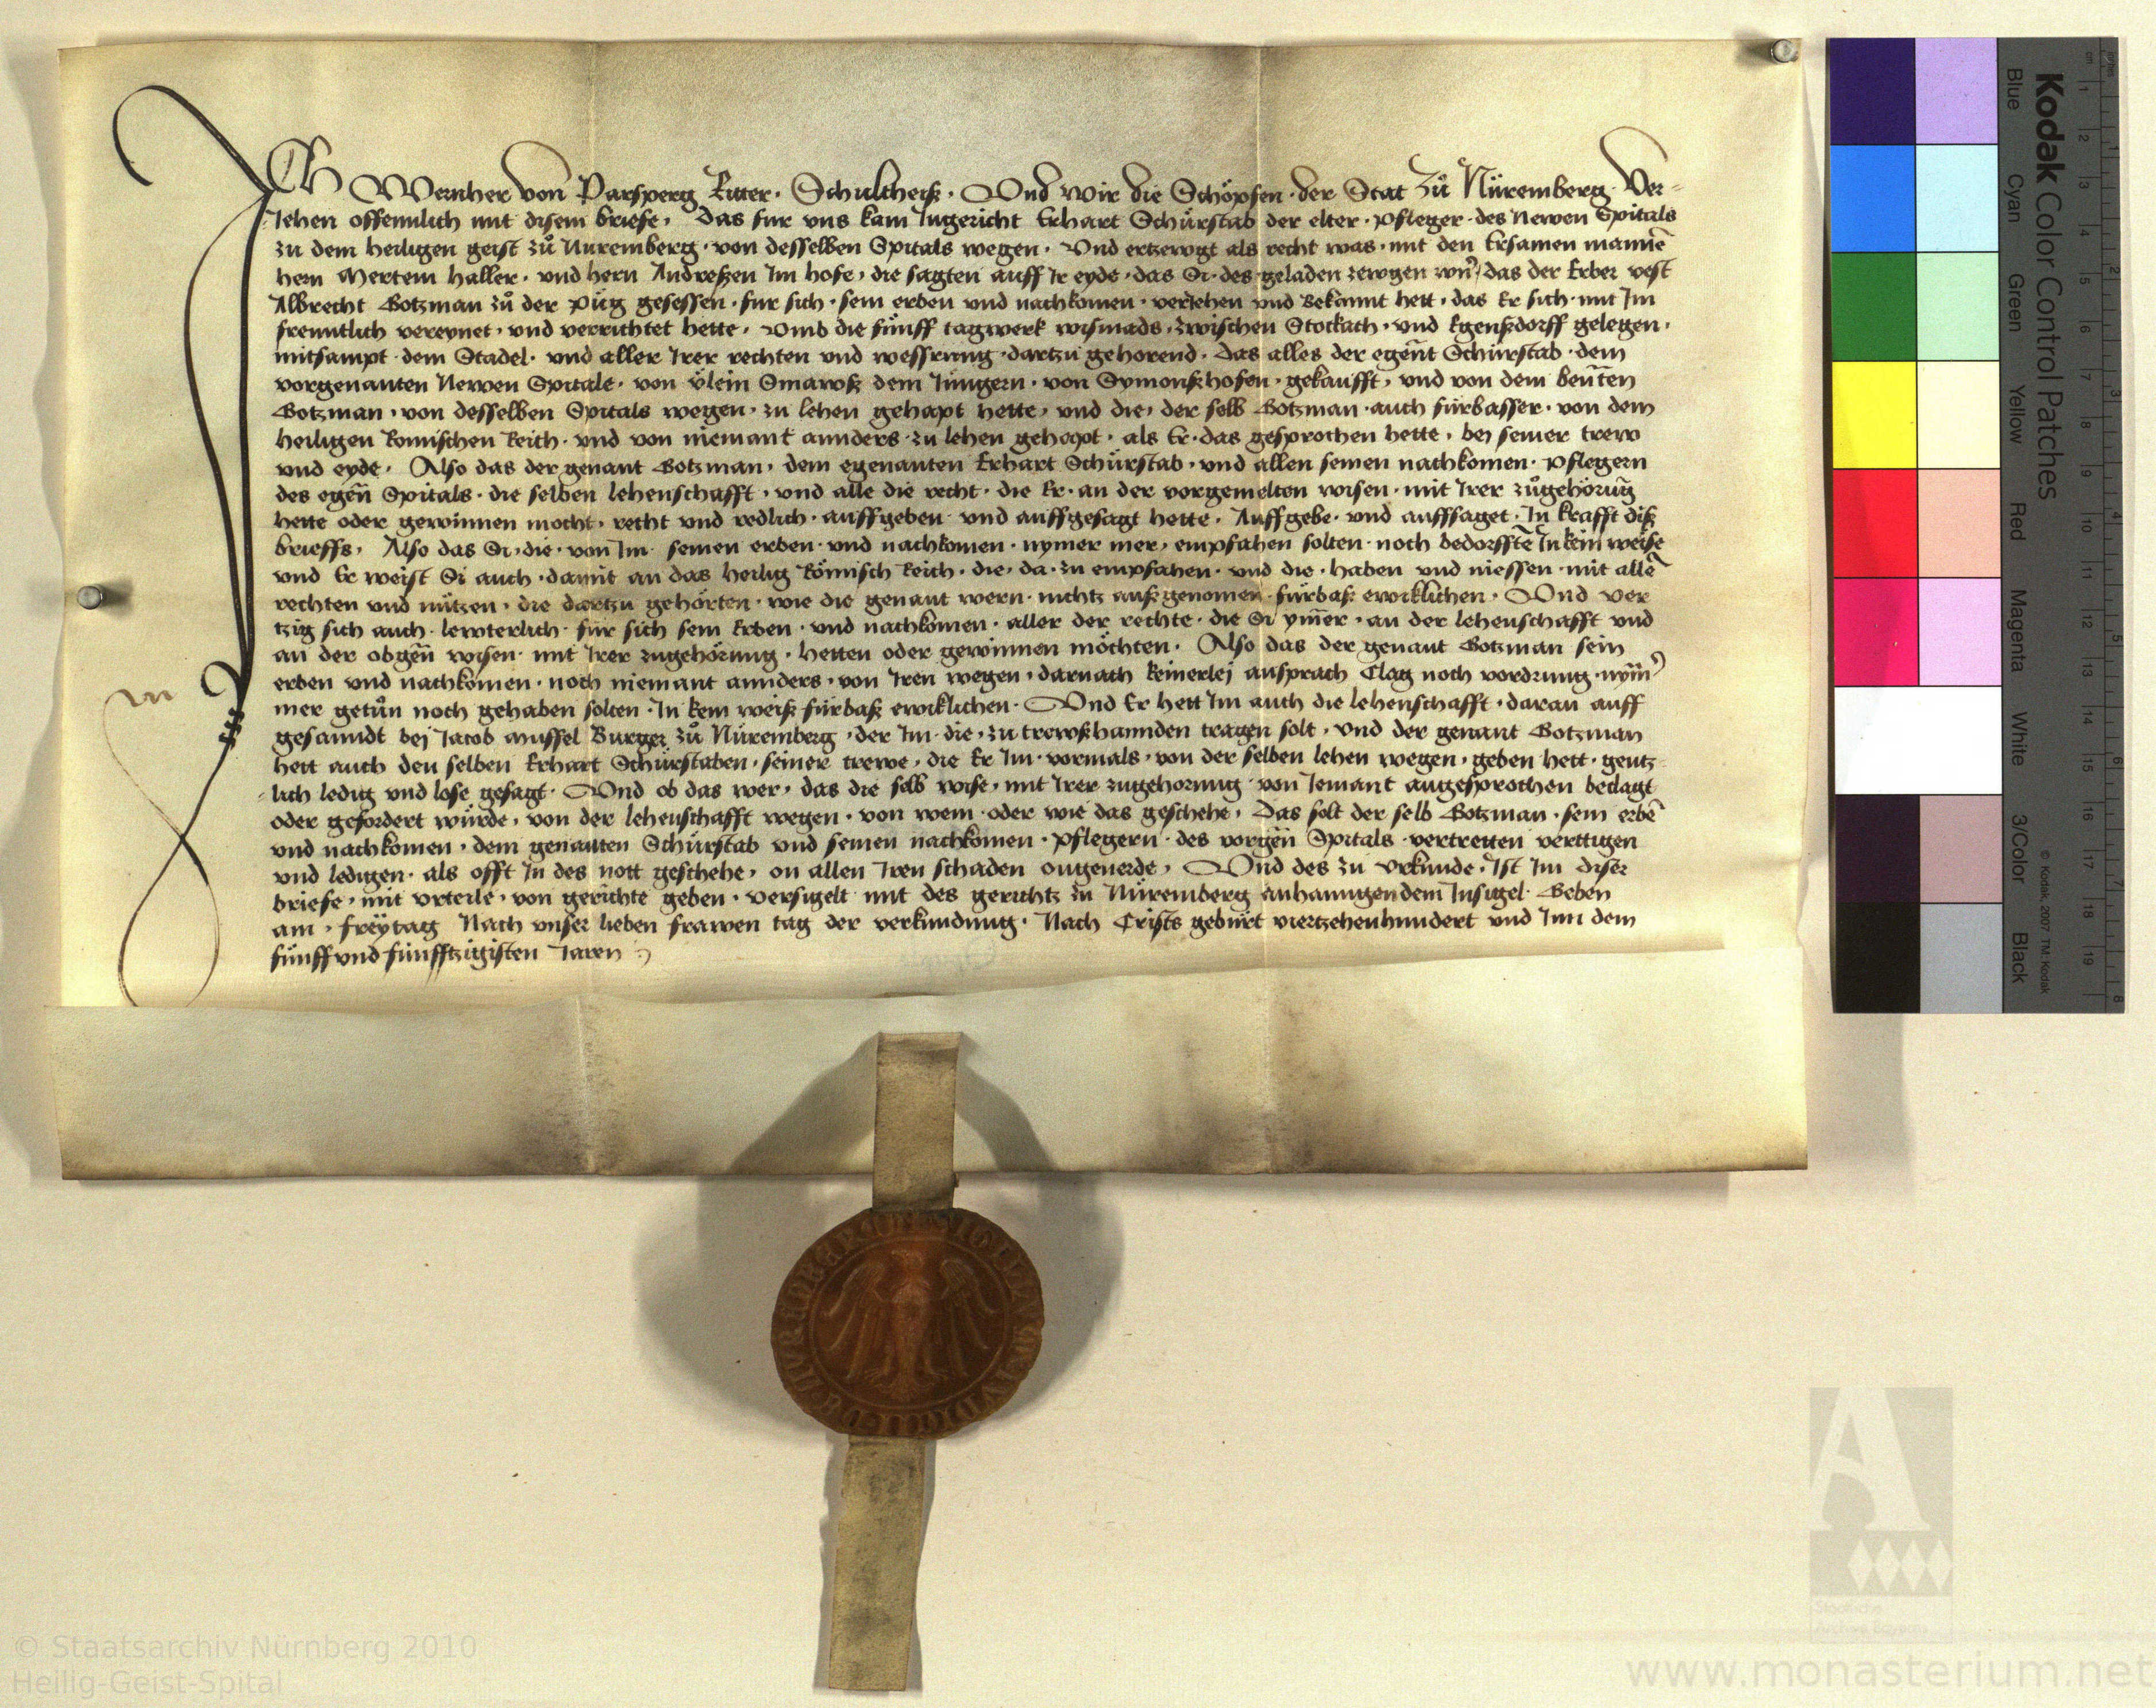 Ich Wernher von Parsperg Ritter · Schultheiß · Vnd wir die Schöpfen · der Stat zů Nüremberg · Ver=
Jehen offennlich mit disem briefe, Das fur vns kam Ingericht Erhart Schürstab der elter · Pfleger · des Newen Spitals
zu dem heiligen geist zů Nuremberg · von desselben Spitals wegen · Vnd ertzewgt als recht was · mit den Ersamen mannē
hern Mertein Haller · vnd hern Andreßen Im hofe, die sagten auff Ir eyde · das Si · des · geladen zewgen wern, das der Erber vest
Albrecht Gotzman zů der Půg gesessen · fur sich · sein erben vnd nachkomen · veriehen vnd Bekannt hett, das Er sich · mit Im
freuntlich vereynet, vnd verrichtet hette, Vmb die fünff tagwerk wismads, zwischen Stockach, vnd Egenßdorff gelegen,
mitsampt · dem Stadel · vnd aller Irer rechten vnd wessrung · dartzu gehorend · Das alles der egen̄t Schürstab · dem
vorgenanten Newen Spitale · von v̈lein Smawß dem Jüngern · von Symonßhofen · gekaufft, vnd von dem ben̄ten
Gotzman, von desselben Spitals wegen · zu lehen gehapt hette, vnd die, der selb Gotzman · auch fürbasser · von dem
heiligen Romischen Reich · vnd von niemant annders · zu lehen gehapt · als Er · das gesprochen hette, bej seiner trew
vnd eyde · Also das der genant Gotzman, dem egenanten Erhart Schürstab, vnd allen seinen nachkomen · Pflegern
des egen̄ Spitals · die selben lehenschafft, vnd alle die recht · die Er · an der vorgemelten wisen · mit Irer zůgehörūg
hette oder gewinnen mocht, recht vnd redlich · auffgeben · vnd auffgesagt hette · Auffgebe · vnd auffsaget · In krafft diß
brieffs, Also das Si, die · von Im · seinen erben · vnd nachkomen · nymer mer, empfahen solten · noch bedorfftē In kein weise
vnd Er weist Si auch · damit an das heilig Römisch Reich · die, da · zu empfahen · vnd die · haben vnd niessen · mit allē
rechten vnd nützen, die dartzu gehörten · wie die genant wern · nichtz außgenomen · fürbaß ewiklichen · Vnd ver
tzig sich auch · lewterlich · für sich sein Erben · vnd nachkomen · aller der rechte · die Si ym̄er · an der lehenschafft vnd
an der obgen̄ wisen · mit Irer zugehörung · hetten oder gewinnen möchten · Also das der genant Gotzman sein
erben vnd nachkomen · noch niemant annders · von Iren wegen, darnach keinerlej ansprach Clag noch vordrung · nym̄
mer getůn noch gehaben solten · In kein weiß fürbaß ewiklichen · Vnd Er hett Im auch die lehenschafft · daran auff
gesanndt bej Jacob muffel Burger zů Nüremberg, der Im · die, zu trewßhannden tragen solt, vnd der genant Gotzman
hett auch den selben Erhart Schürstaben, seiner trewe, die Er Im · vormals · von der selben lehen wegen · geben hett · gentz
lich ledig vnd lose gesagt · Vnd ob das wer, das die selb wise, mit Irer zugehorung · von Iemant angesprochen beclagt
oder gefordert würde, von der lehenschafft wegen · von wem · oder wie das geschehe, Das solt der selb Gotzman · sein erbē
vnd nachkomen, dem genanten Schürstab vnd seinen nachkomen · Pflegern · des vorgen̄ Spitals · vertretten verttigen
vnd ledigen · als offt In des nott geschehe, on allen Iren schaden ongeuerde, Vnd des zu vrkunde · Ist Im diser
briefe, mit vrteile, von gerichte geben · versigelt mit des gerichtz zu Nüremberg anhanngendem Insigel · Geben
am · freytag Nach vnser lieben frawen tag der verkundung · Nach Crists gebürt viertzehenhundert vnd Inn dem
fünff vnd fünfftzigisten Jaren
Kodak Color Control Patches
Blue Cyan Green Yellow Red Magenta White 3/Color Black
© Kodak, 2007 TM: Kodak
© Staatsarchiv Nürnberg 2010
Heilig-Geist-Spital
www.monasterium.net